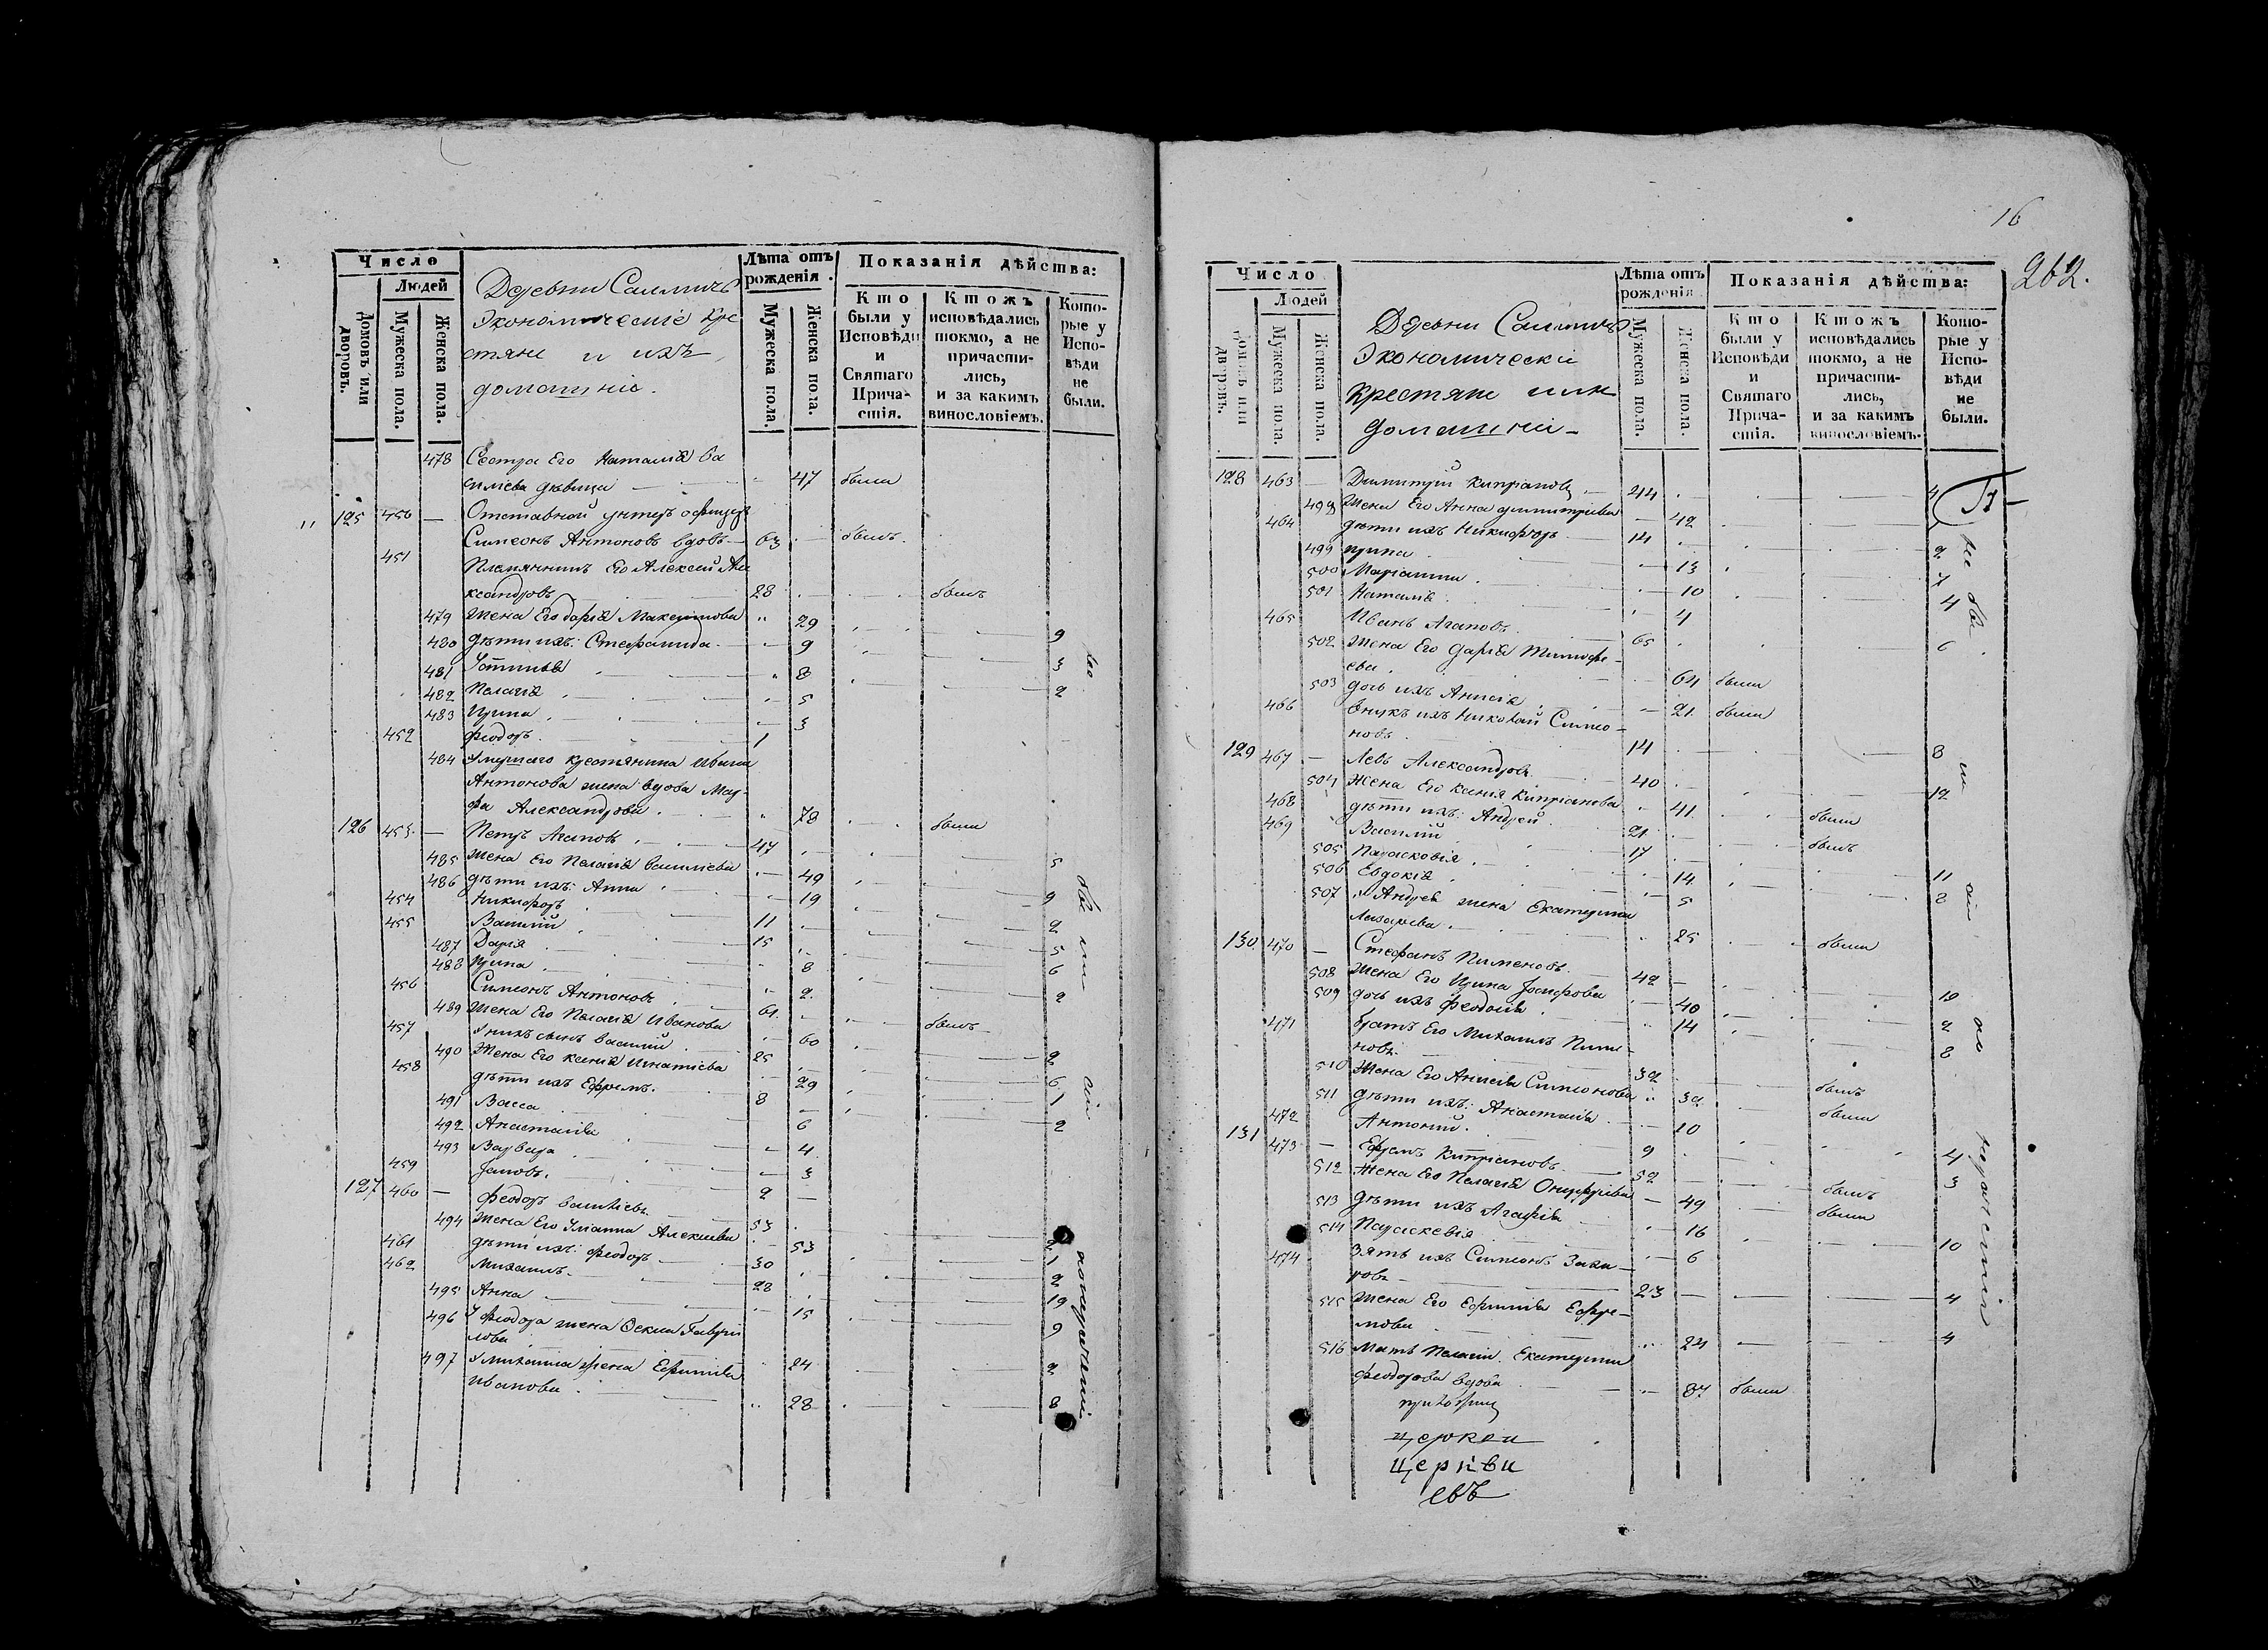 Число
Людей
Домовъ или дворовъ.
Мужеска пола.
Женска пола.
Деревни
Экономическіе Кре
стяне и ихъ
домашніе.
Лѣта отъ рожденія.
Мужеска пола.
Женска пола.
Показанія дѣйства:
Кто были у Исповѣди и Святаго Причастія.
Ктожъ исповѣдались токмо, а не причастились, и за какимъ винословіемъ.
Которые у Исповѣди не были.
478 Сестра Его Наталія Ва
силіева дѣвица 47 были
125 450 — Отставной унтеръ офицеръ
Симеонъ Антоновъ вдовъ 63 былъ
451 Племянникъ Его Алексей Але
ксандровъ 28 былъ
479 Жена Его Дарія Максимова 29 9
480 Дѣти ихъ: Стефанида 9 3
481 Устинія 8 2
482 Пелагія 5
483 Ирина 3
452 Феодоръ 1
484 Умершаго крестянина Ивана
Антонова жена вдова Мар
фа Александрова 78 были
126 453 — Петръ Агаповъ 47 5
485 Жена Его Пелагія Василіева 49
486 дѣти ихъ: Анна 19 9
454 Никифоръ 11 2
455 Василій 15 5
487 Дарія 8 6
488 Ирина 2 2
456 Симеонъ Антоновъ 61 былъ
489 Жена Его Пелагія Иванова 60
457 У нихъ сынъ Василій 25 2
490 Жена Его Ксенія Игнатіева 29 6
458 дѣти ихъ Ефремъ 8 1
491 Васса 6 2
492 Анастасія 4
493 Варвара 3
459 Іаковъ 2
127 460 — Феодоръ Василіевъ 53
494 Жена Его Уліанна Алексіева 53 2
461 дѣти ихъ: Феодоръ 30 1
462 Михаилъ 28 2
495 Анна 15 19
496 У Феодора жена Фекла Гаврии
лова 24 9
2
497 У Михаила жена Ефимія
Иванова 28 8
не бы ли по нерачению
16
262.
Число
Людей
Домовъ или дворовъ.
Мужеска пола.
Женска пола.
Деревни
Экономическіе
Крестяне и ихъ
домашніе
Лѣта отъ рожденія
Мужеска пола.
Женска пола.
Показанія дѣйства:
Кто были у Исповѣди и Святаго Причастія.
Ктожъ исповѣдались токмо, а не причастились, и за какимъ винословіемъ.
Которые у Исповѣди не были.
128 463 — Димитрій Кипріановъ 44 4
498 Жена Его Анна Димитріева 42
464 дѣти ихъ Никифоръ 14 2
499 Ирина 13 7
500 Маріанна 10 4
501 Наталія 4
465 Иванъ Агаповъ 65 6
502 Жена Его Дарія Тимофе
ева 64 были
503 дочь ихъ Анисія 21 были
466 Внукъ ихъ Николай Симео
новъ 14 8
129 467 — Левъ Александровъ 40 12
504 Жена Его Ксенія Кипріанова 41 были
468 дѣти ихъ: Андрей 21 былъ
469 Василій 17
505 Парасковія 14 11
506 Евдокія 5 8
507 У Андрея жена Екатерина
Лазарева 25 были
130 470 — Стефанъ Пименовъ 42
508 Жена Его Ирина Іосифова 40 10
509 дочь ихъ Феодосія 14 2
471 братъ Его Михаилъ Пиме
новъ 32 8
былъ
510 Жена Его Анисія Симеонова 32 были
511 дѣти ихъ: Анастасія 10
472 Антоній 9 4
131 473 — Ефремъ Кипріановъ 52 3
былъ
512 Жена Его Пелагія Онуфріева 49 были
513 дѣти ихъ Агафія 16
514 Параскевія 6 10
474 Зять ихъ Симеонъ Заха
ровъ 23 4
515 Жена Его Ефимія Ефре
мова 24 4
516 Мать Пелагіи Екатерина
Феодорова вдова 87 были
церкви
церкви
евъ